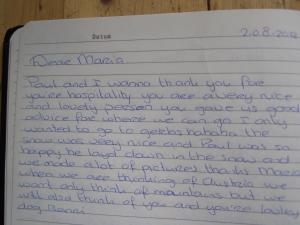 Datum 20.8.2012
Dear Maria
Paul and I wanna thank you for
you're hospitality you are a very nice
and lovely person you gave us good
advice for where we can go I only
wanted to go to the
snow was very nice and Paul was so
happy he layd down in the snow and
we made a lot of pictures thanks Maria
when we are thinking of Austria we
want only think of mountains but we
will also think of you and you're lovley
dog